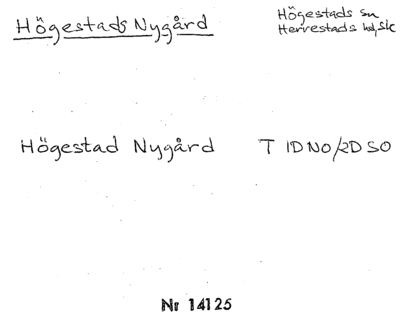 Högestads Nygård
Högestads sn
Herrestads hd, Sk
Högestad Nygård T 1DNO/2DSO
Nr 14125